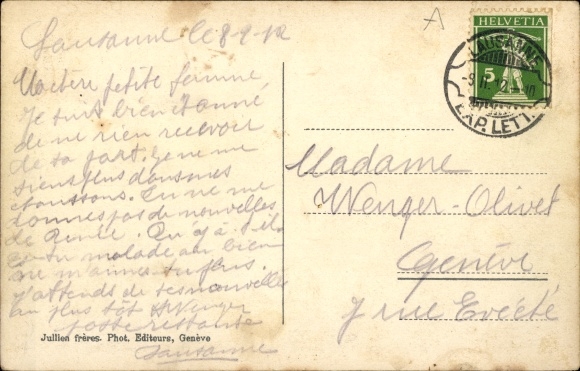 A
Lausanne le 8-9-12
HELVETIA
5
LAUSANNE
EXP. LETT.
Ma chère petite femme
Je suis bien étonné
de ne rien recevoir
de ta part. Je ne me
tiens plus dans mes
chaussons. Tu ne me
donnes pas de nouvelles
de Renée. Qu'y a-t-il
es-tu malade ou bien
ne m'aimes-tu plus.
J'attends de tes nouvelles
au plus tôt Wenger
poste restante
Lausanne
Jullien frères. Phot. Editeurs, Genève
Madame
Wenger-Olivet
Genève
7 rue Evêché